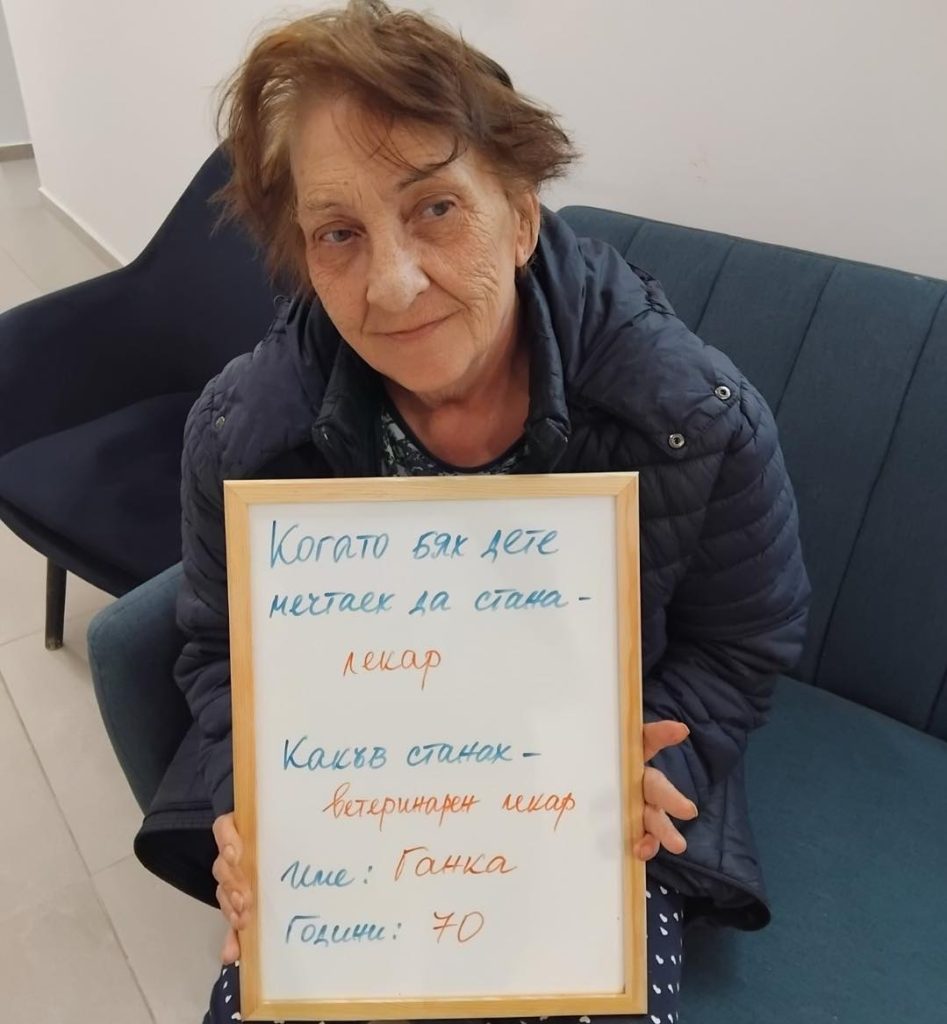 Когато бях дете
мечтаех да стана -
лекар
Какъв станах -
ветеринарен лекар
Име: Ганка
Години: 70